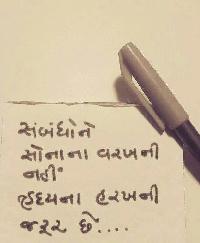 સંબંધોને
સોનાના વરખની
નહીં
હૃદયના હરખની
જરૂર છે....